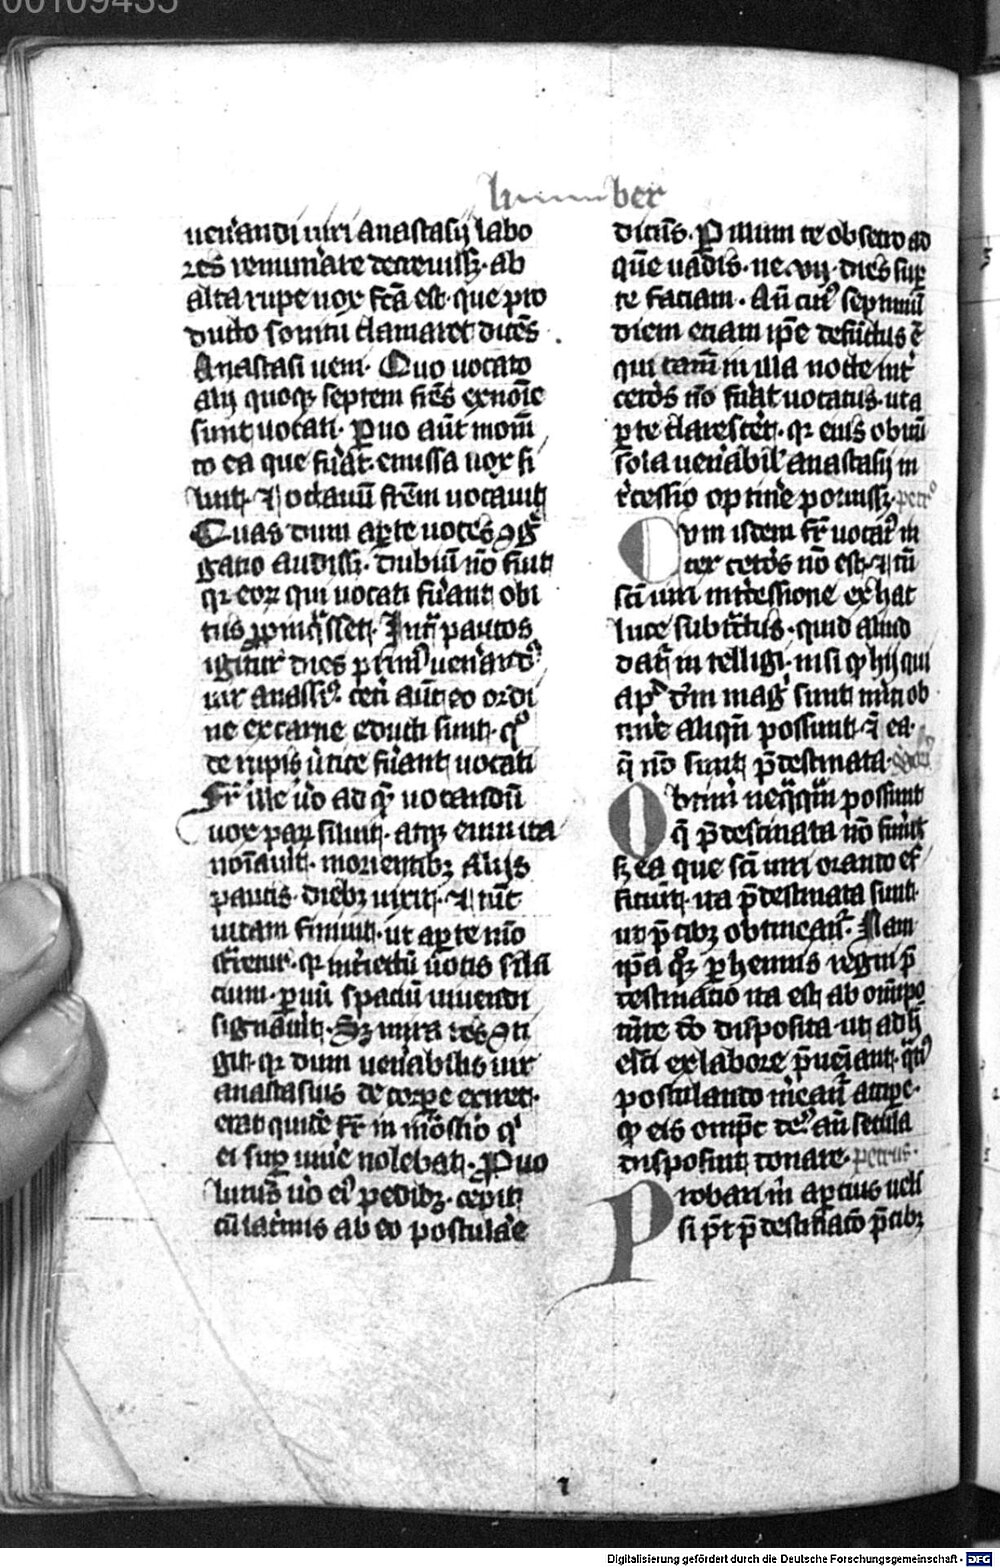 00109435
liber
ueñandi uiri anastasij labo
res remunare decreuiss. ab
alta rupe uox fcā est. que pro
ducto sonitu clamaret dicēs.
Anastasi ueni. Quo uocato
alij quoq; septem frēs ex noīe
sunt uocati. Paruo aūt momē
to ea que fuāt emissa uox si
luit. & octauū frēm uocauit
Cuas dum aperte uoces gre
gatio audiss. dubiū nō fuit
qr eor qui uocati fuant obi
tus ppinqsset. Intra paucos
igitur dies primus uenand
uir anastasi9. ceti aūt eo ordi
ne ex carne educti sunt. quo
de rupis uertice fuant uocati
Fr ille uō ad quē uocandū
uox par siluit. atq; eum ita
noīauit. morientib; alijs
paucis dieb; uixit. & tūc
uitam finiuit. ut aperte mō
strētur. qr intiectū uocis silē
cium. paruū spaciū uiuendi
signauit. Sz mira res
git. qr dum uenabilis uir
anastasius de corpe exiret.
erat quidē fr in mōstio q
ei sup uiue nolebat. Prouo
lutus uō ei9 pedib;. cepit
cū lacrimis ab eo postulae
dicēs. P illum te obsecro ad
quē uadis. ne vij. dies sup
te faciam. An cui9 septimū
diem etiam ipe defūctus ē
qui tamē in illa nocte int
cetos nō fuat uocatus. ut a
pte claresceret. qr eius obitū
sola uenabil anastasij in
tcessio optine potuiss. petr9
Cum isdem fr uocat in
ter cetos nō est. & tn
scī uiri intcessione ex hac
luce subtctus. quid aliud
dat intelligi. nisi q hij qui
apd dm magi sunt miti ob
tine aliqn possunt. & ea.
q nō sunt pdestinata.
Obtini neqqm possunt
q pdestinata nō sunt
sz ea que scī uiri orando ef
ficiunt. ita pdestinata sunt.
ut pcib; obtineant. Nam
ipa qoz phennis regni p
destinatio ita est ab omipo
tente do disposita. ut ad h
electi ex labore pueniant. qtin9
postulando meant accipe.
q eis ompc de9 an secula
disposuit donare. petrus.
Probari m apcius uelī
si pt pdestinatio pcib;
1
Digitalisierung gefördert durch die Deutsche Forschungsgemeinschaft - DFG